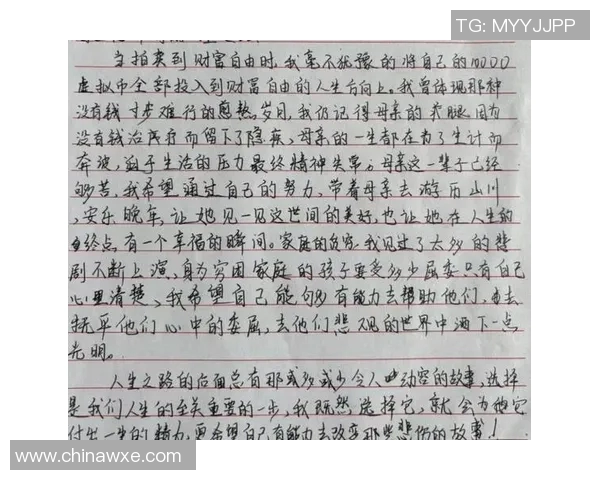 TG: MYYJJPP
当拍卖到财富自由时,我毫不犹豫的将自己的10000
虚拟币全部投入到财富自由的人生方向上。我曾体现那种
没有钱寸步难行的煎熬岁月,我仍记得母亲的 腿因为
没有钱治疗而留下了隐疾,母亲的一生都在为了生计而
奔波,迫于生活的压力最终精神失常。母亲这一辈子已经
够苦,我希望通过自己的努力,带着母亲去游历山川
,安乐晚年,让她见一见这世间的美好,也让她在人生的
终点有一个幸福的瞬间。家庭的贫穷,我见过了太多的悲
剧不断上演,身为穷困家庭的孩子要受多少屈委只有自己
心里清楚,我希望自己能够有能力去帮助他们,去
抚平他们心中的委屈,去他们悲观的世界中洒下一点
光明。
人生之路的后面总有那或多或少令人动容的故事,选择
是我们人生的至关重要的一步,我既然选择它,就会为他它
付出一生的精力,更希望自己有能力去改变那些悲伤的故事!
www.chinawxe.com